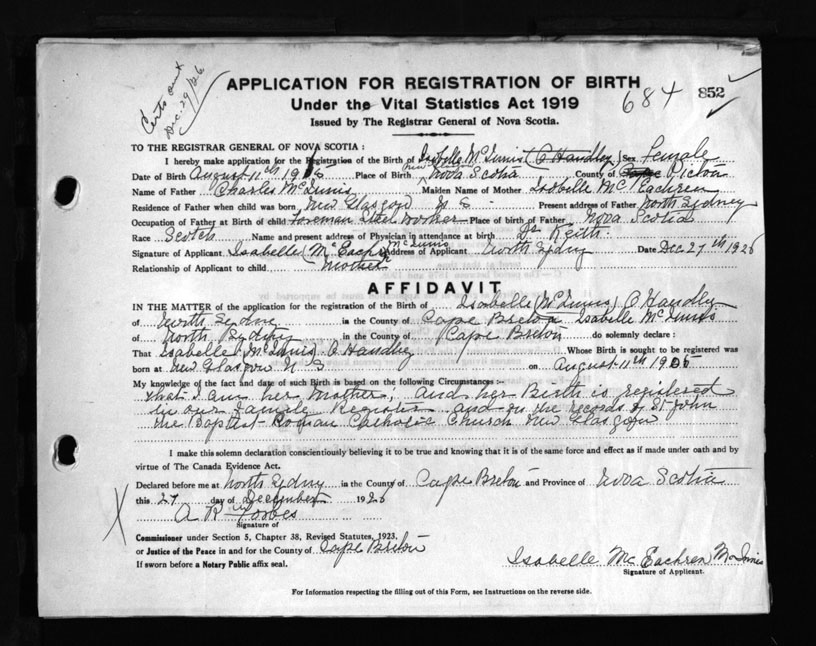 Certs sent
Dec. 29/26
APPLICATION FOR REGISTRATION OF BIRTH
Under the Vital Statistics Act 1919
684 852
Issued by The Registrar General of Nova Scotia.
TO THE REGISTRAR GENERAL OF NOVA SCOTIA :
I hereby make application for the Registration of the Birth of Isabelle McInnis (O Handley) Sex Female
Date of Birth August 11th 1905 Place of Birth New Glasgow Nova Scotia County of Pictou
Name of Father Charles McInnis Maiden Name of Mother Isabelle McEachren
Residence of Father when child was born New Glasgow N S Present address of Father North Sydney
Occupation of Father at Birth of child Foreman Steel Worker Place of birth of Father Nova Scotia
Race Scotch Name and present address of Physician in attendance at birth Dr Keith
Signature of Applicant Isabelle (McEachren McInnis Address of Applicant North Sydney Date Dec. 27th 1926
Relationship of Applicant to child Mother
AFFIDAVIT
IN THE MATTER of the application for the registration of the Birth of Isabelle (McInnis) O Handley
of North Sydney in the County of Cape Breton Isabelle McInnis
of North Sydney in the County of Cape Breton do solemnly declare :
That Isabelle (McInnis) O Handley Whose Birth is sought to be registered was
born at New Glasgow N S on August 11th 1905
My knowledge of the fact and date of such Birth is based on the following Circumstances :-
that I am her mother, and her Birth is registered
in our Family Register and on the records of St John
the Baptist Roman Catholic Church New Glasgow
I make this solemn declaration conscientiously believing it to be true and knowing that it is of the same force and effect as if made under oath and by
virtue of The Canada Evidence Act.
Declared before me at North Sydney in the County of Cape Breton and Province of Nova Scotia
this 27 day of December 1926
X A R Forbes
Signature of
Commissioner under Section 5, Chapter 38, Revised Statutes, 1923,
or Justice of the Peace in and for the County of Cape Breton
If sworn before a Notary Public affix seal.
Isabelle McEachren McInnis
Signature of Applicant.
For Information respecting the filling out of this Form, see Instructions on the reverse side.